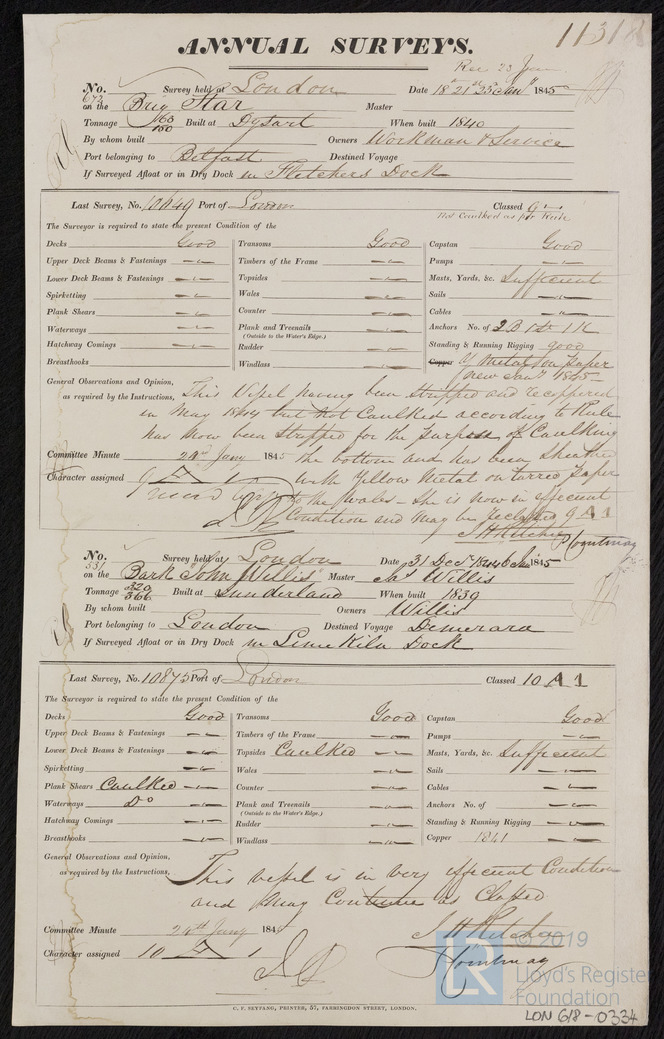 11318
ANNUAL SURVEYS.
Rec 23 Jan
No. 673 Survey held at London Date 18 21st 23 Jany 1845
on the Brig Star Master
Tonnage 163 150 Built at Dysart When built 1840
By whom built Owners Workman & Service
Port belonging to Belfast Destined Voyage
If Surveyed Afloat or in Dry Dock in Fletchers Dock
Last Survey, No. 10649 Port of London Classed 9
Not Caulked as per Rule
The Surveyor is required to state the present Condition of the
Decks Good Transoms Good Capstan Good
Upper Deck Beams & Fastenings Timbers of the Frame Pumps
Lower Deck Beams & Fastenings Topsides Masts, Yards, &c. Sufficient
Spirketting Wales Sails
Plank Shears Counter Cables
Waterways Plank and Treenails Anchors No. of 2B 1St 1K
(Outside to the Water's Edge.)
Hatchway Comings Rudder Standing & Running Rigging good
Breasthooks Windlass Copper Y Metal on paper
new Jany 1845
General Observations and Opinion, This Vessel having been stripped and recoppered
as required by the Instructions, in May 1844 but not Caulked according to Rule
has now been stripped for the purpose of Caulking
Committee Minute 24th Jany 1845 the bottom and has been sheathed
Character assigned 9 A 1 with Yellow Metal on tarred paper
to the wales - She is now in efficient
Condition and may be reclassed 9 A1
J H Ritchie
No. 531 Survey held at London Date 31 Decr 1844 6 Jan 1845
on the Bark "John Willis" Master Jas Willis
Tonnage 320 366 Built at Sunderland When built 1839
By whom built Owners Willis
Port belonging to London Destined Voyage Demerara
If Surveyed Afloat or in Dry Dock in Lime Kiln Dock
Last Survey, No. 10875 Port of London Classed 10 A1
The Surveyor is required to state the present Condition of the
Decks Good Transoms Good Capstan Good
Upper Deck Beams & Fastenings Timbers of the Frame Pumps
Lower Deck Beams & Fastenings Topsides Caulked Masts, Yards, &c. Sufficient
Spirketting Wales Sails
Plank Shears Caulked Counter Cables
Waterways Do Plank and Treenails Anchors No. of
(Outside to the Water's Edge.)
Hatchway Comings Rudder Standing & Running Rigging
Breasthooks Windlass Copper 1841
General Observations and Opinion,
as required by the Instructions, This vessel is in very efficient Condition
and may Continue as Classed
Committee Minute 24th Jany 1845 J H Ritchie
Character assigned 10 A 1
C. F. SEYFANG, PRINTER, 57, FARRINGDON STREET, LONDON.
LR © 2019
Lloyd's Register
Foundation
LON 618-0334